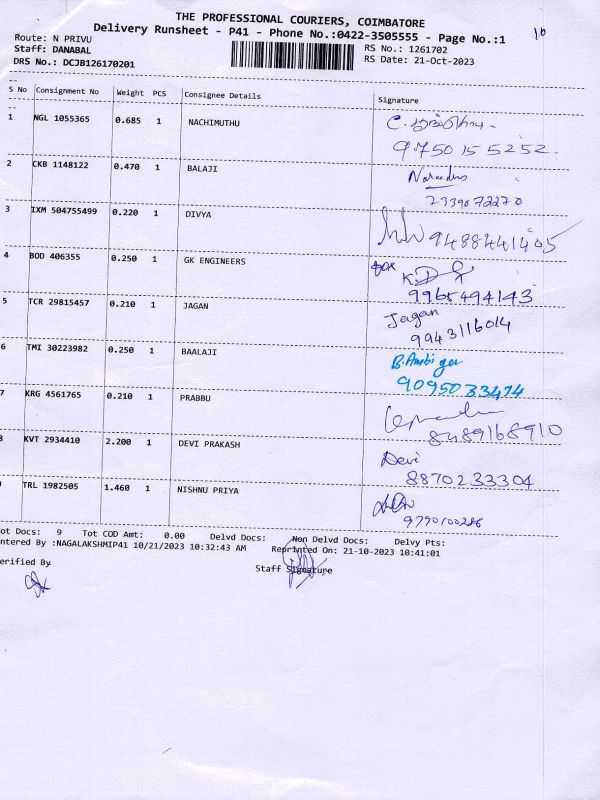 THE PROFESSIONAL COURIERS, COIMBATORE
Delivery Runsheet - P41 - Phone No.:0422-3505555 - Page No.:1
16
Route: N PRIVU
RS No.: 1261702
Staff: DANABAL
RS Date: 21-Oct-2023
DRS No.: DCJB126170201
S No Consignment No Weight PCS Consignee Details Signature
1 NGL 1055365 0.685 1 NACHIMUTHU
9750155252
2 CKB 1148122 0.470 1 BALAJI
2339072270
3 IXM 504755499 0.220 1 DIVYA
9488441405
4 BOD 406355 0.250 1 GK ENGINEERS
9965494143
5 TCR 29815457 0.210 1 JAGAN Jagan
9943116014
6 TMI 30223982 0.250 1 BAALAJI
9095033474
7 KRG 4561765 0.210 1 PRABBU
8489168910
8 KVT 2934410 2.200 1 DEVI PRAKASH Devi
8870233304
TRL 1982505 1.460 1 NISHNU PRIYA
ot Docs: 9 Tot COD Amt: 0.00 Delvd Docs: Non Delvd Docs: Delvy Pts:
ntered By :NAGALAKSHMIP41 10/21/2023 10:32:43 AM Reprinted On: 21-10-2023 10:41:01
erified By
Staff Signature